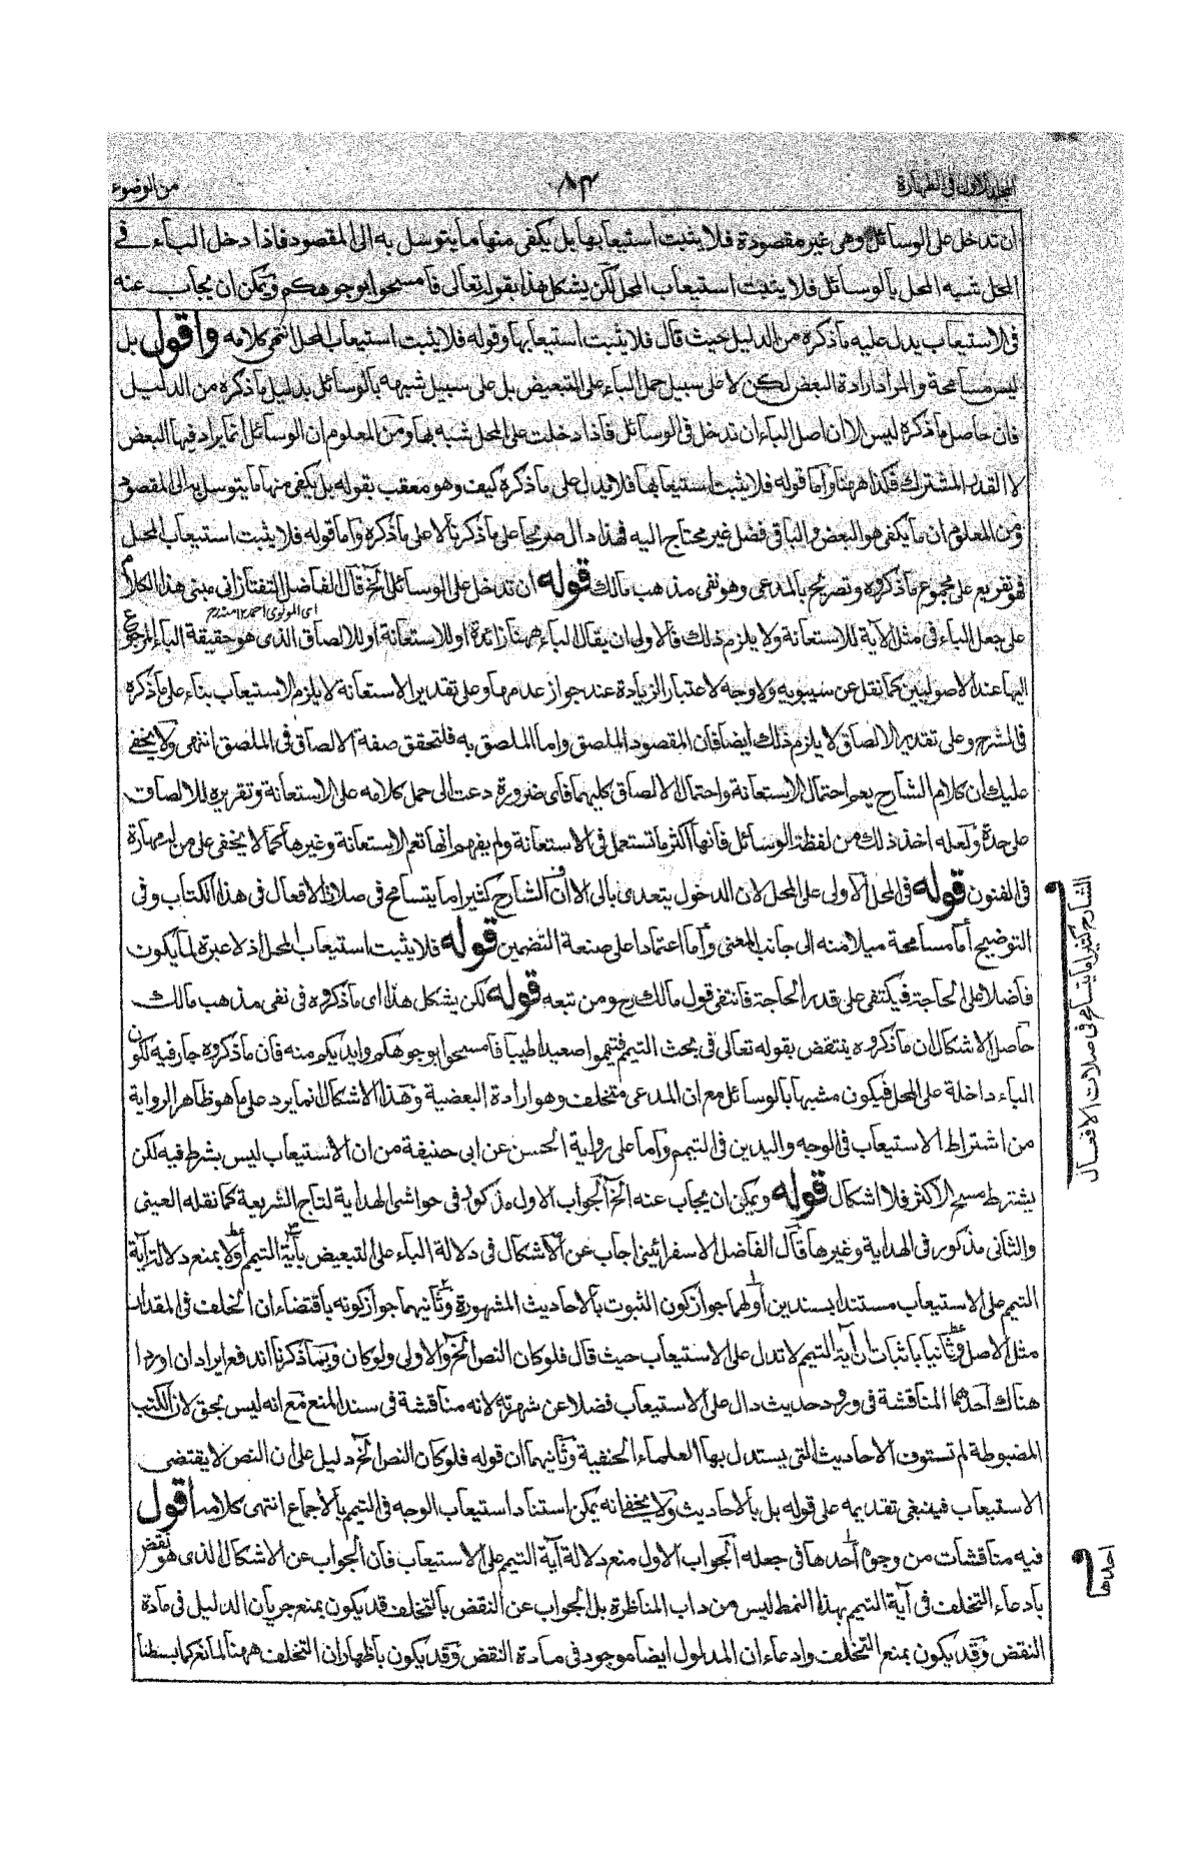 المجلد الاول فى الطهارة
٨٤
من الوضوء
ان تدخل على الوسائل وهى غير مقصودة فلا يثبت استيعابها بل يكفى منها ما يتوسل به الى المقصود فاذا دخل الباء فى
المحل شبه المحل بالوسائل فلا يثبت استيعاب المحل لكن يشكل هذا بقوله تعالى فامسحوا بوجوهكم ويمكن ان يجاب عنه
فى الاستيعاب يدل عليه ما ذكره من الدليل حيث قال فلا يثبت استيعابها وقوله فلا يثبت استيعاب المحل انتهى كلامه واقول بل
ليس مسامحة والمراد ارادة البعض لكن لا على سبيل حمل الباء على التبعيض بل على سبيل شبهه بالوسائل بدليل ما ذكره من الدليل
فان حاصل ما ذكره ليس الا ان اصل الباء ان تدخل فى الوسائل فاذا دخلت على المحل شبه بها ومن المعلوم ان الوسائل انما يراد فيها البعض
لا القدر المشترك فكذا ههنا واما قوله فلا يثبت استيعابها فلا يدل على ما ذكره كيف وهو معقب بقوله بل يكفى منها ما يتوسل به الى المقصود
ومن المعلوم ان ما يكفى هو البعض والباقى فضل غير محتاج اليه فهذا دال صريحا على ما ذكرنا لا على ما ذكره واما قوله فلا يثبت استيعاب المحل
فهو تفريع على مجموع ما ذكروه وتصريح بالمدعى وهو نفى مذهب مالك قوله ان تدخل على الوسائل الخ قال الفاضل التفتازانى مبنى هذا الكلام
اى المولوى احمد ١٢ منه رح
على جعل الباء فى مثل الآية للاستعانة ولا يلزم ذلك فالاولى ان يقال الباء ههنا زائدة او للاستعانة او للالصاق الذى هو حقيقة الباء المرجوع
اليها عند الاصوليين كما نقل عن سيبويه ولا وجه لاعتبار الزيادة عند جواز عدمها وعلى تقدير الاستعانة لا يلزم الاستيعاب بناء على ما ذكره
فى الشرح وعلى تقدير الالصاق لا يلزم ذلك ايضا فان المقصود الملصق واما الملصق به فلتحقق صفة الالصاق فى الملصق انتهى ولا يخفى
عليك ان كلام الشارح يعم احتمال الاستعانة واحتمال الالصاق كليهما فاى ضرورة دعت الى حمل كلامه على الاستعانة وتقريره للالصاق
على حدة ولعله اخذ ذلك من لفظة الوسائل فانها اكثر ما تستعمل فى الاستعانة ولم يفهم انها تعم الاستعانة وغيرها كما لا يخفى على من له مهارة
فى الفنون قوله فى المحل الاولى على المحل لان الدخول يتعدى بالى الا ان الشارح كثيرا ما يتسامح فى صلات الافعال فى هذا الكتاب وفى
التوضيح اما مسامحة ميلا منه الى جانب المعنى واما اعتمادا على صنعة التضمين قوله فلا يثبت استيعاب المحل اذ لا عبرة لما يكون
فاضلا على الحاجة فيكتفى على قدر الحاجة فانتفى قول مالك رح ومن تبعه قوله لكن يشكل هذا اى ما ذكروه فى نفى مذهب مالك
حاصل الاشكال ان ما ذكروه ينتقض بقوله تعالى فى بحث التيمم فتيمموا صعيدا طيبا فامسحوا بوجوهكم وايديكم منه فان ما ذكروه جار فيه لكون
الباء داخلة على المحل فيكون مشبها بالوسائل مع ان المدعى متخلف وهو ارادة البعضية وهذا الاشكال انما يرد على ما هو ظاهر الرواية
من اشتراط الاستيعاب فى الوجه واليدين فى التيمم واما على رواية الحسن عن ابى حنيفة من ان الاستيعاب ليس بشرط فيه لكن
يشترط مسح الاكثر فلا اشكال قوله ويمكن ان يجاب عنه الخ الجواب الاول مذكور فى حواشى الهداية لتاج الشريعة كما نقله العينى
والثانى مذكور فى الهداية وغيرها قال الفاضل الاسفرائينى اجاب عن الاشكال فى دلالة الباء على التبعيض بآية التيمم اولا بمنع دلالة آية
التيمم على الاستيعاب مستندا بسندين اولهما جواز كون الثبوت بالاحاديث المشهورة وثانيهما جواز كونه باقتضاء ان الخلف فى المقدار
مثل الاصل وثانيا باثبات ان آية التيمم لا تدل على الاستيعاب حيث قال فلو كان النص الخ والاولى ولو كان وبما ذكرنا اندفع ايرادان اوردا
هناك احدهما المناقشة فى ورود حديث دال على الاستيعاب فضلا عن شهرته لانه مناقشة فى سند المنع مع انه ليس بحق لان الكتب
المضبوطة لم تستوف الاحاديث التى يستدل بها العلماء الحنفية وثانيهما ان قوله فلو كان النص الخ دليل على ان النص لا يقتضى
الاستيعاب فينبغى تقديمه على قوله بل بالاحاديث ولا يخفى انه يمكن استناد استيعاب الوجه فى التيمم بالاجماع انتهى كلامه اقول
فيه مناقشات من وجوه احدها فى جعله الجواب الاول منع دلالة آية التيمم على الاستيعاب فان الجواب عن الاشكال الذى هو نقض
بادعاء التخلف فى آية التيمم بهذا النمط ليس من داب المناظرة بل الجواب عن النقض بالتخلف قد يكون بمنع جريان الدليل فى مادة
النقض وقد يكون بمنع التخلف وادعاء ان المدلول ايضا موجود فى مادة النقض وقد يكون باظهار ان التخلف ههنا لمانع كما بسطنا
الشارح كثيرا ما يتسامح فى صلات الافعال
احدها